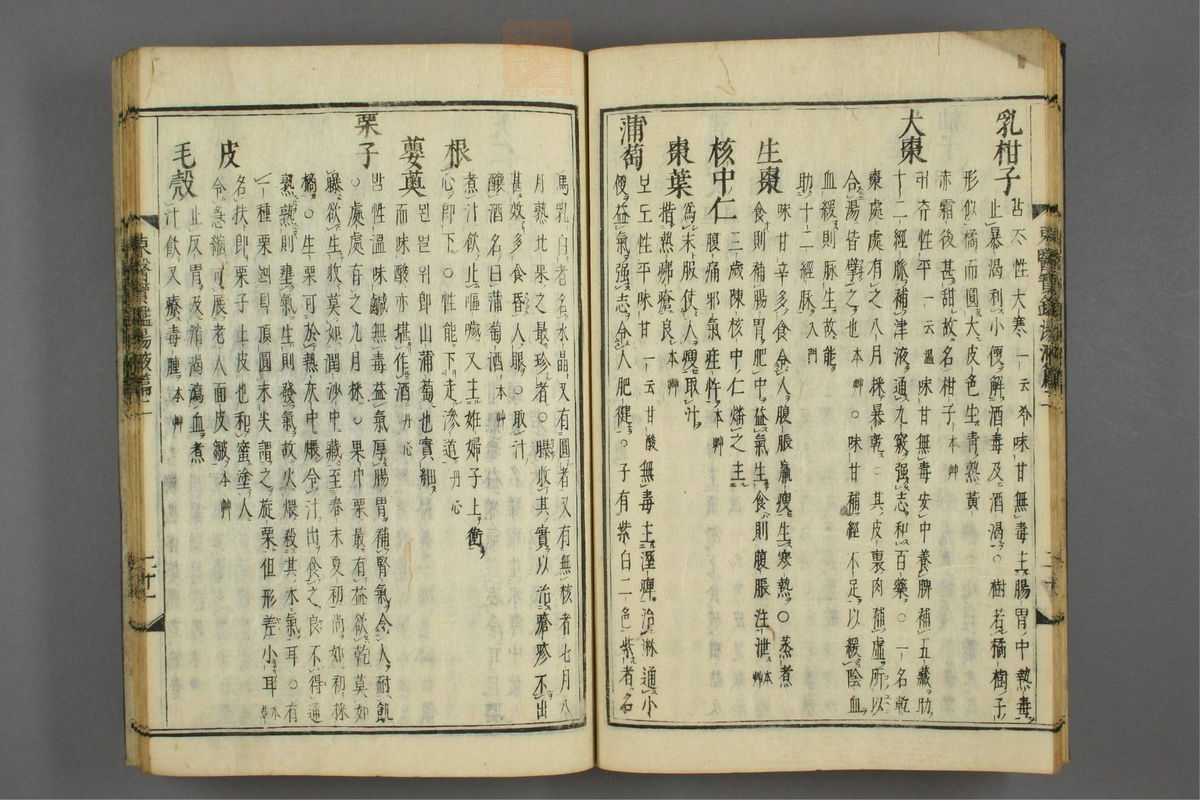 乳柑子 감ᄌᆞ性大寒一云冷味甘無毒主腸胃中熱毒
止暴渴利小便解酒毒及酒渴○樹若橘樹子
形似橘而圓大皮色生青熟黃
赤霜後甚甜故名柑子本艸
大棗 性平一云溫味甘無毒安中養脾補五藏助
十二經脈補津液通九竅强志和百藥○一名乾
棗處處有之八月採暴乾○其皮裏肉補虛所以
合湯皆擘之也本艸○味甘補經不足以緩陰血
血緩則脈生故能
助十二經脈入門
生棗 味甘辛多食令人腹脹羸瘦生寒熱○蒸煮
食則補腸胃肥中益氣生食則腹脹注泄本艸
核中仁 三歲陳核中仁燔之主
腹痛邪氣疰忤本艸
棗葉 爲末服使人瘦取汁
揩熱疿瘡良本艸
蒲萄 보도性平味甘一云甘酸無毒主溼痺治淋通小
便益氣强志令人肥健○子有紫白二色紫者名
馬乳白者名水晶又有圓者又有無核者七月八
月熟北果之最珍者○取收其實以治瘡疹不出
甚效多食昏人眼○取汁
釀酒名曰蒲萄酒本艸
根 煮汁飮止嘔噦又主姙婦子上衝
心卽下○性能下走滲道丹心
蘡薁 멀위卽山蒲萄也實細
而味酸亦堪作酒丹心
栗子 밤性溫味鹹無毒益氣厚腸胃補腎氣令人耐飢
○處處有之九月採○果中栗最有益欲乾莫如
曝欲生收莫如潤沙中藏至春末夏初尙如初採
摘○生栗可於熱灰中煨令汁出食之良不得通
熟熟則壅氣生則發氣故火煨殺其水氣耳○有
一種栗頂圓末尖謂之旋栗但形差小耳本艸
皮 名扶卽栗子上皮也和蜜塗人
令急縮可展老人面皮皺本艸
毛殼 止反胃及消渴瀉血煮
汁飮又療毒腫本艸
東醫寶鑑湯液篇二
東醫寶鑑湯液篇二